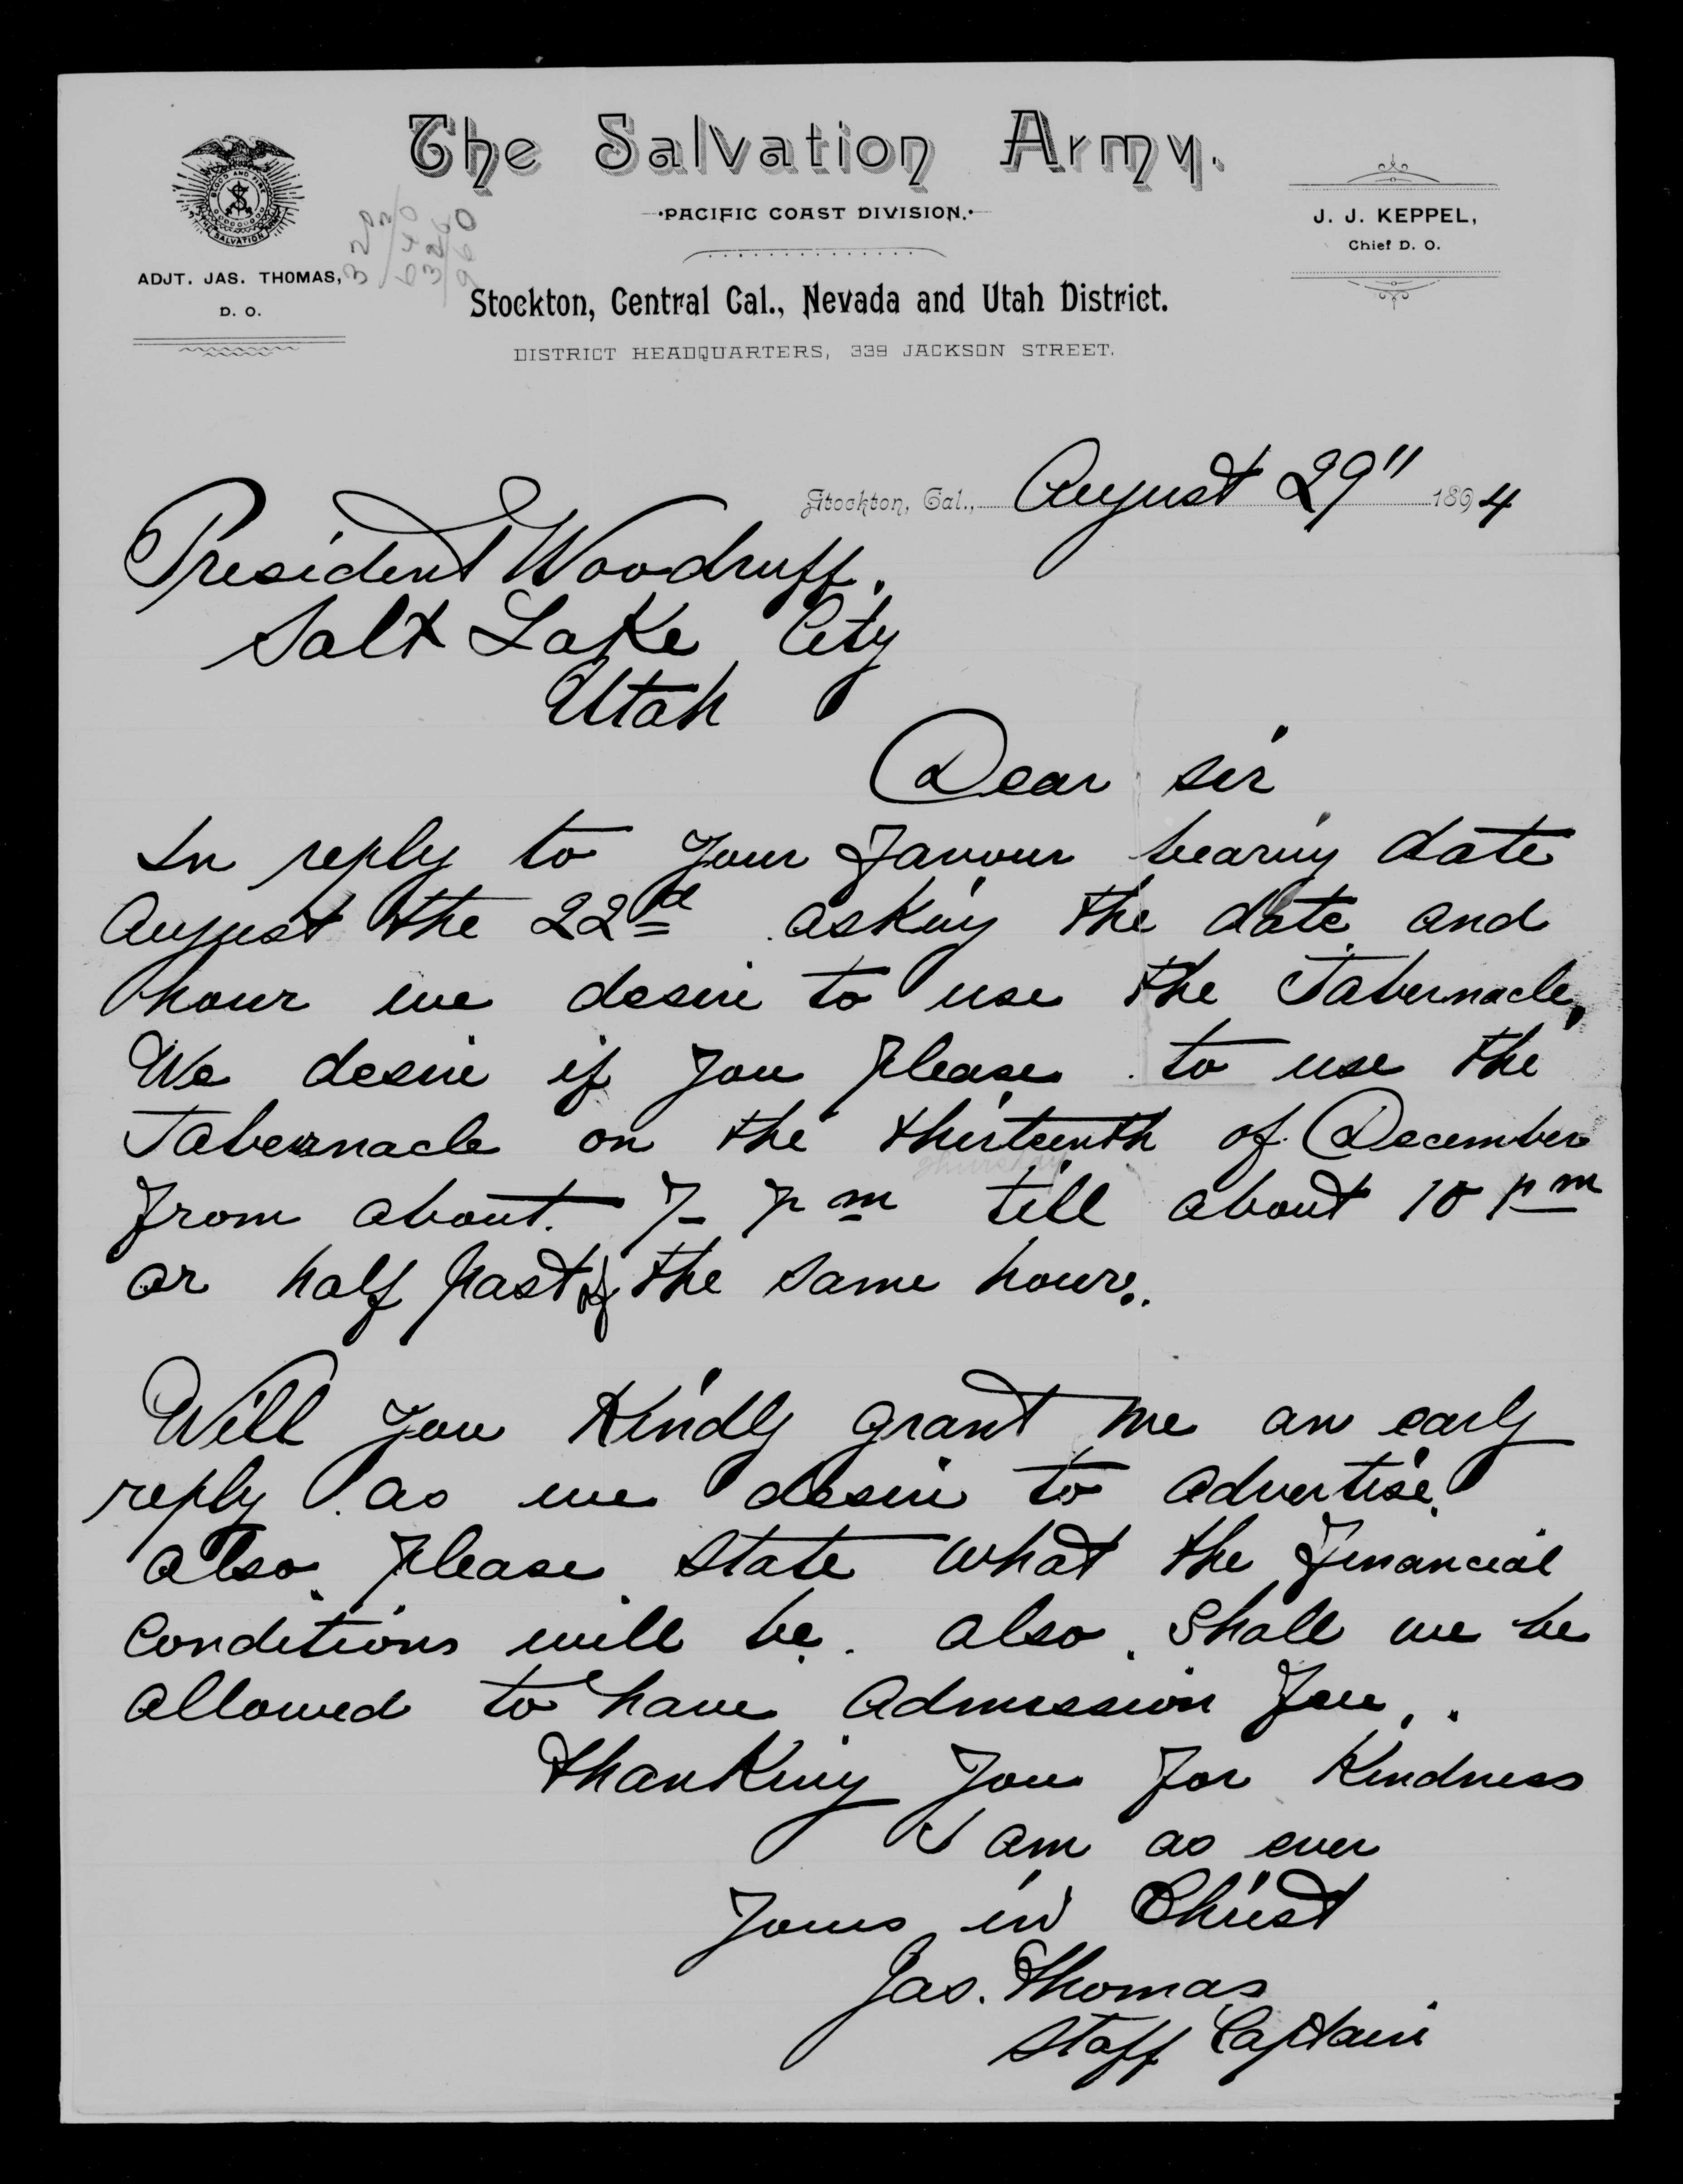 The Salvation Army.
·PACIFIC COAST DIVISION.·
BLOOD AND FIRE
THE SALVATION ARMY
ADJT. JAS. THOMAS,
D. O.
J. J. KEPPEL,
Chief D. O.
Stockton, Central Cal., Nevada and Utah District.
DISTRICT HEADQUARTERS, 339 JACKSON STREET.
Stockton, Cal., August 29" 1894
President Woodruff.
Salt Lake City
Utah
Dear sir
In reply to your favour bearing date
August the 22d asking the date and
hour we desire to use the Tabernacle,
We desire if you please to use the
Tabernacle on the thirteenth of December
Thursday
from about 7- pm till about 10 pm
or half past of the same hour.
Will you kindly grant me an early
reply as we desire to advertise.
also please state what the financial
conditions will be. also shall we be
allowed to have admission fee.
Thanking you for kindness
I am as ever
Yours in Christ
Jas. Thomas
Staff Captain